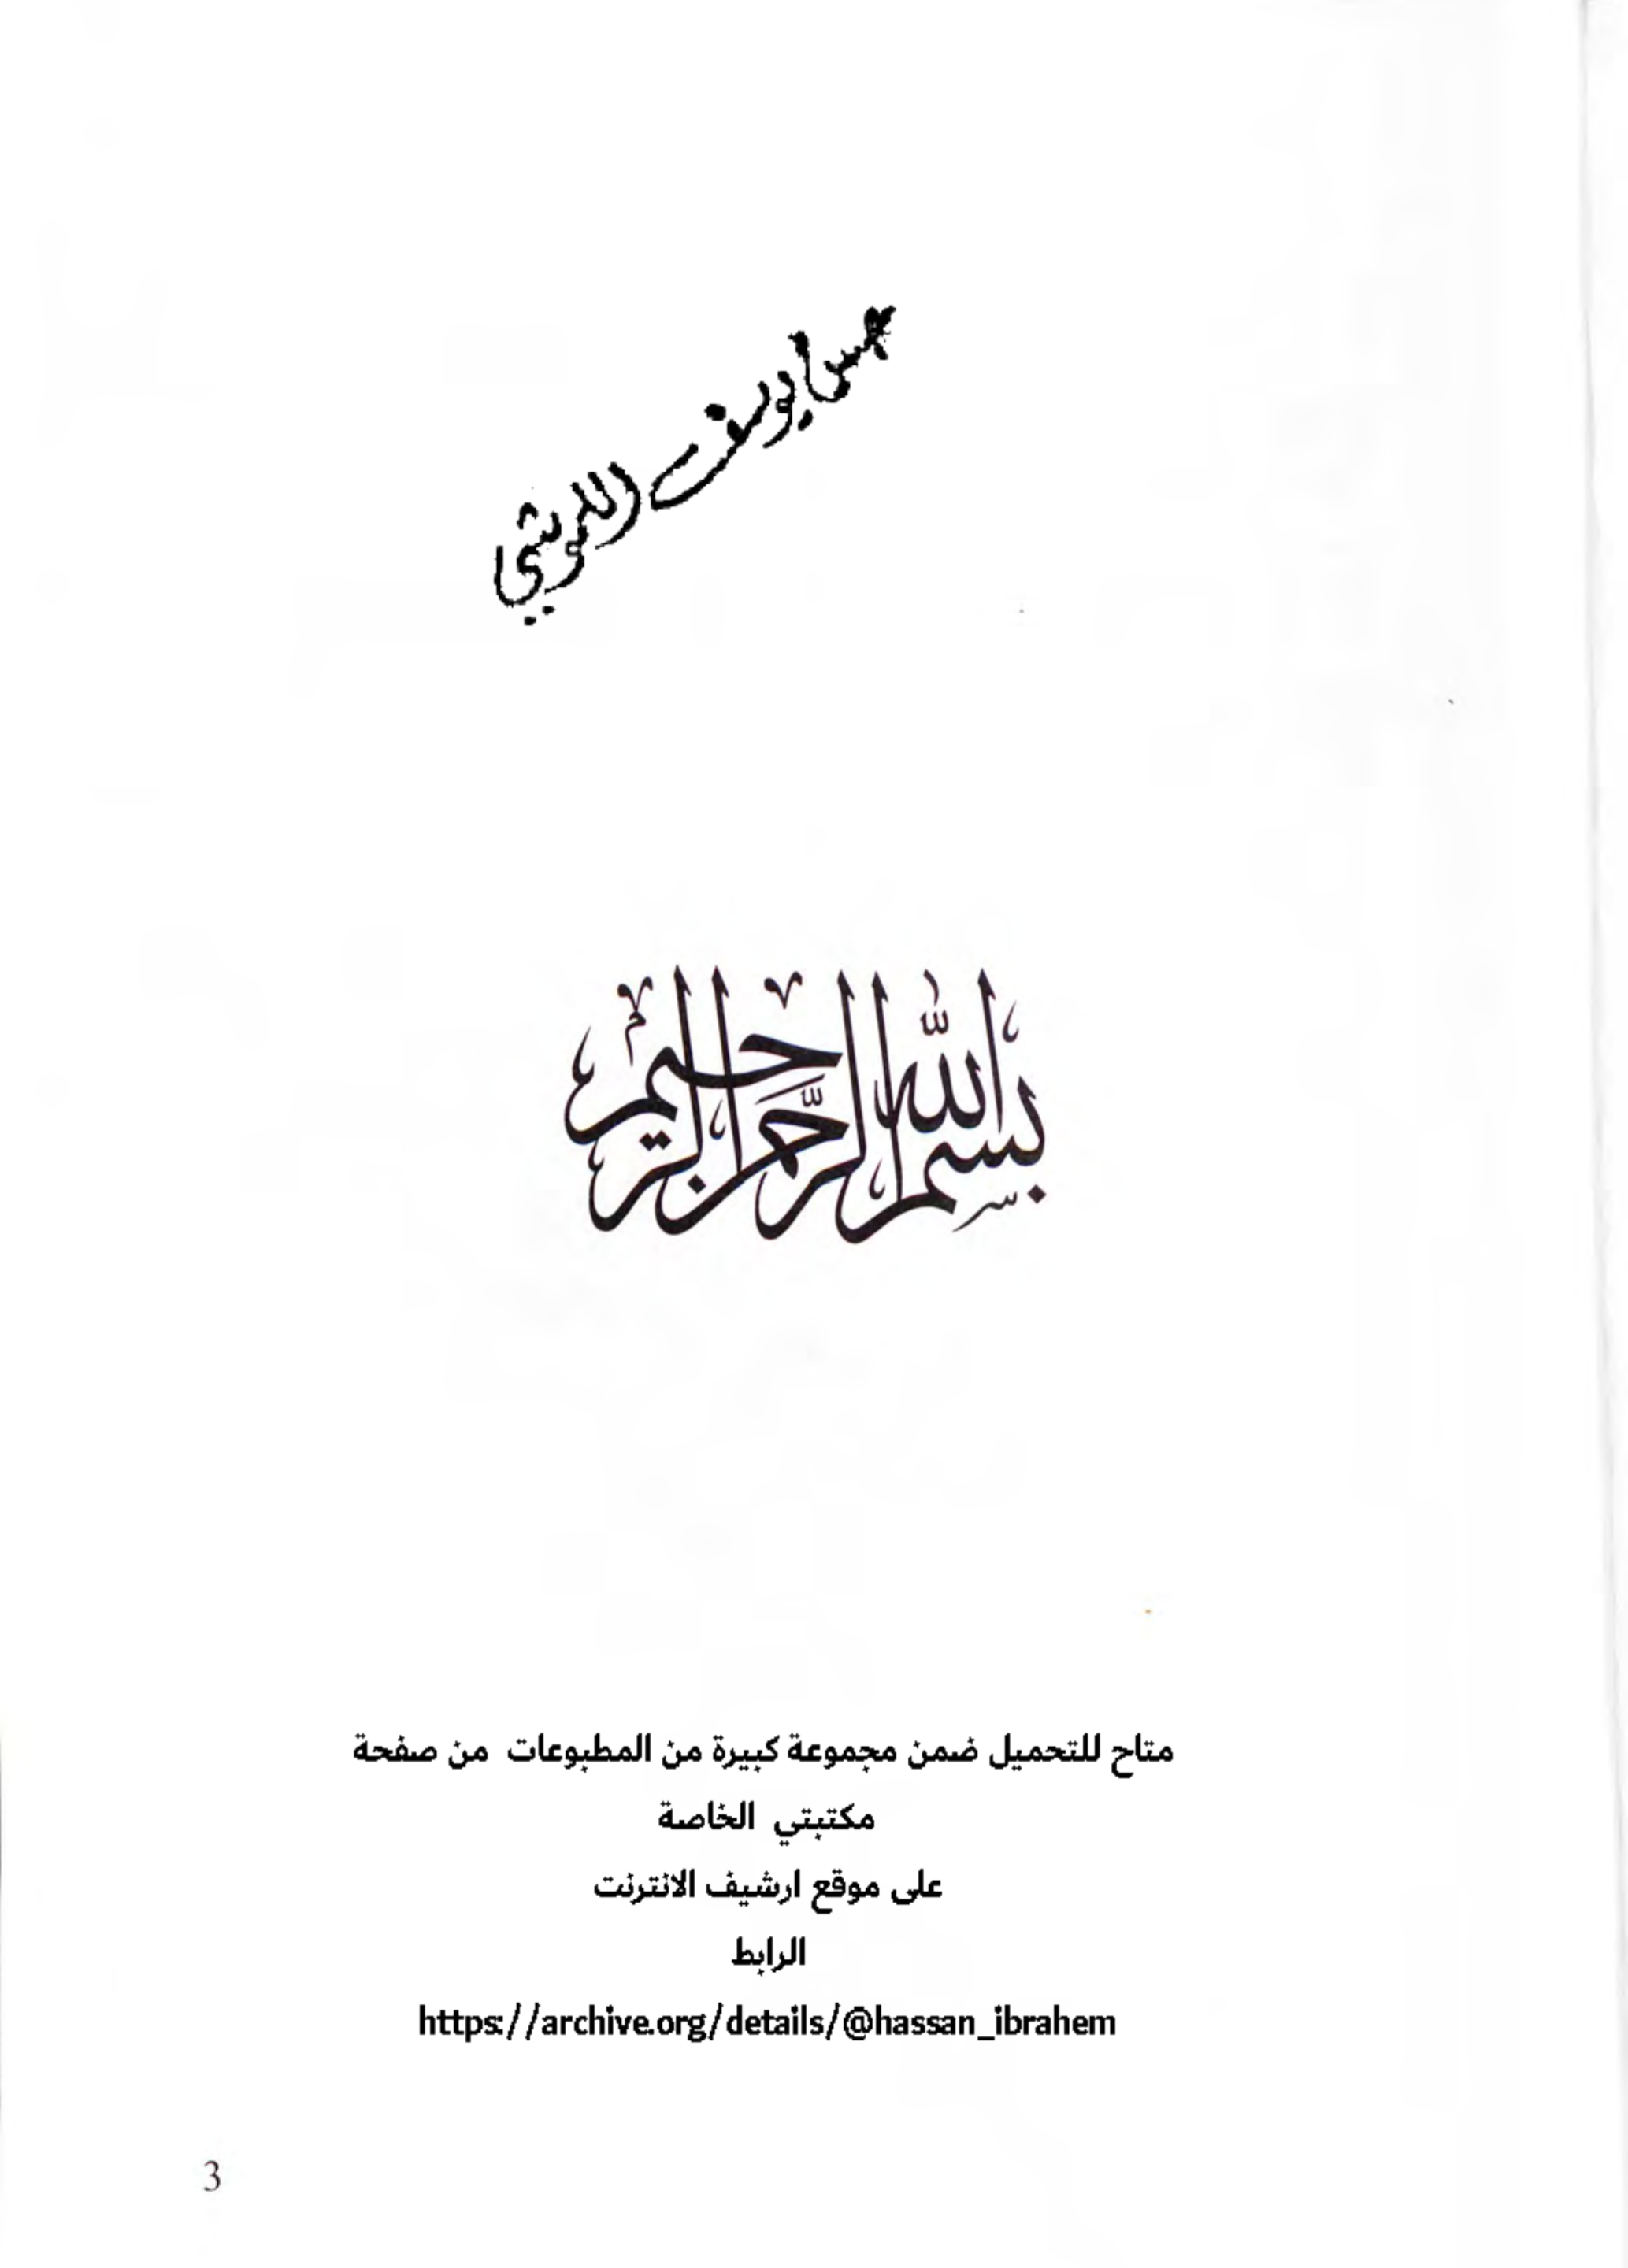 يوسف
بسم الله الرحمن الرحيم
متاح للتحميل ضمن مجموعة كبيرة من المطبوعات من صفحة
مكتبتي الخاصة
على موقع ارشيف الانترنت
الرابط
https://archive.org/details/@hassan_ibrahem
3